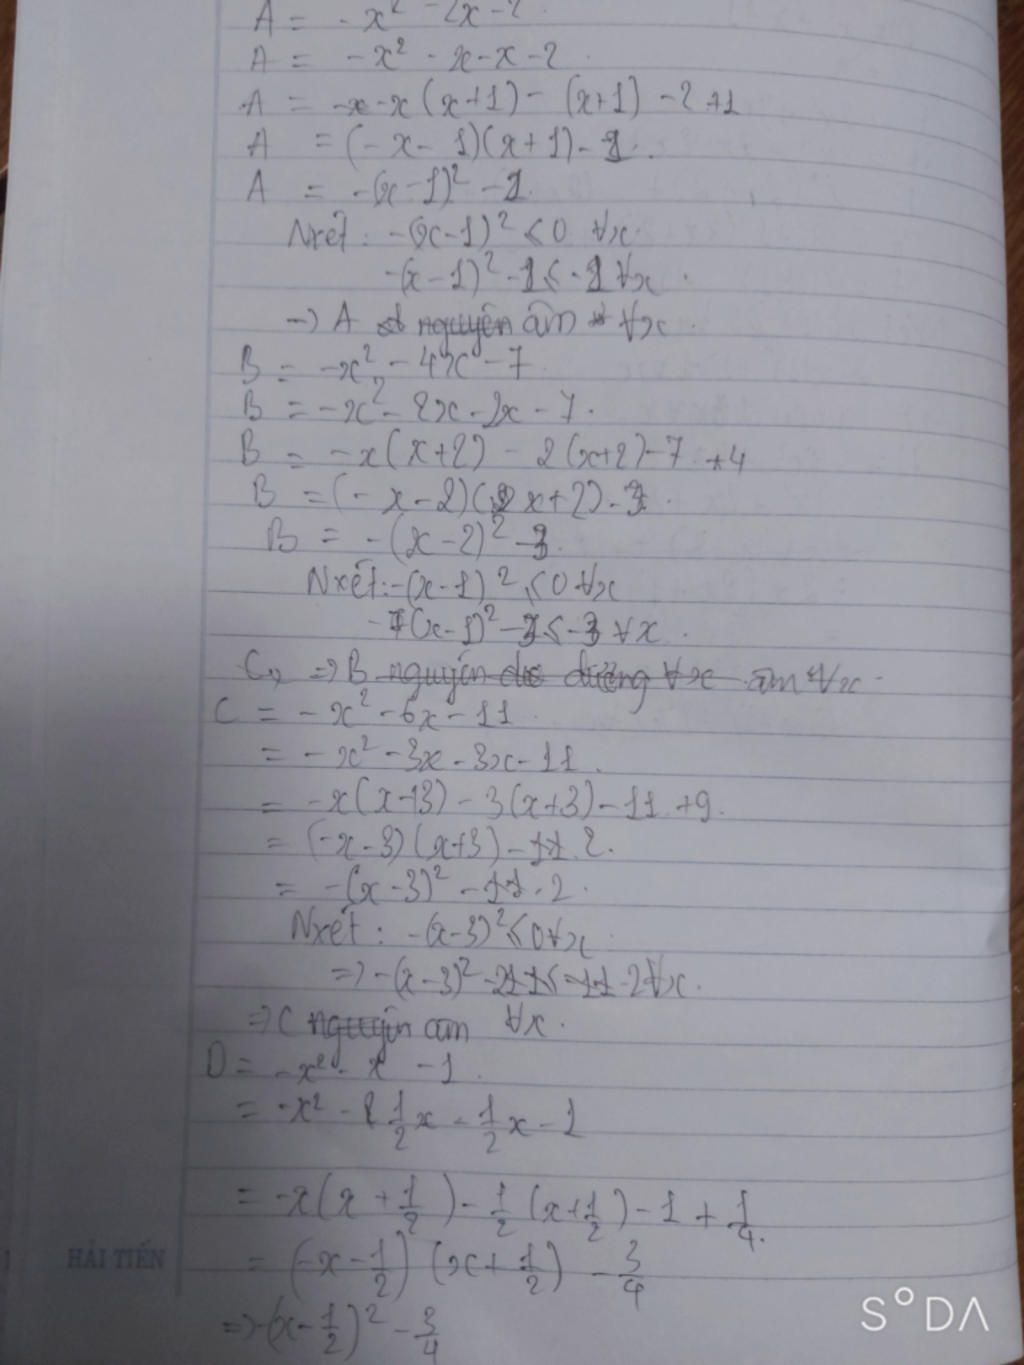 A = -x² - 2x - 2
A = -x² - x - x - 2.
A = -x(x+1) - (x+1) - 2 +1
A = (-x - 1)(x+1) - 1.
A = -(x-1)² - 1.
Nxét: -(x-1)² ≤ 0 ∀x.
-(x-1)² - 1 ≤ -1 ∀x.
→ A âm ∀x.
B = -x² - 4x - 7
B = -x² - 2x - 2x - 7.
B = -x(x+2) - 2(x+2) - 7 +4
B = (-x-2)(x+2) - 3.
B = -(x-2)² - 3.
Nxét: -(x-1)² ≤ 0 ∀x
-(x-1)² - 3 ≤ -3 ∀x.
⇒ B nguyên dương ∀x âm ∀x.
C = -x² - 6x - 11.
= -x² - 3x - 3x - 11.
= -x(x+3) - 3(x+3) - 11 +9.
= (-x-3)(x+3) - 2.
= -(x-3)² - 2.
Nxét: -(x-3)² ≤ 0 ∀x.
⇒ -(x-3)² - 2 ≤ - 2 ∀x.
⇒ C nguyên âm ∀x.
D = -x² - x - 1.
= -x² - 1/2x - 1/2x - 1
= -x(x + 1/2) - 1/2(x + 1/2) - 1 + 1/4.
= (-x - 1/2)(x + 1/2) - 3/4
⇒ -(x - 1/2)² - 3/4
HẢI TIẾN
SODA